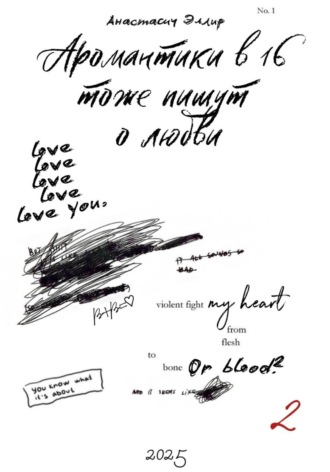 No. 1
Анастасич Эллир
Аромантики в 16
тоже пишут
о любви
love
love
love
love
love you.
violent fight my heart
from
flesh
to
bone Or blood?
you know what
it's about
AND IT SEEMS LIKE
2
2025